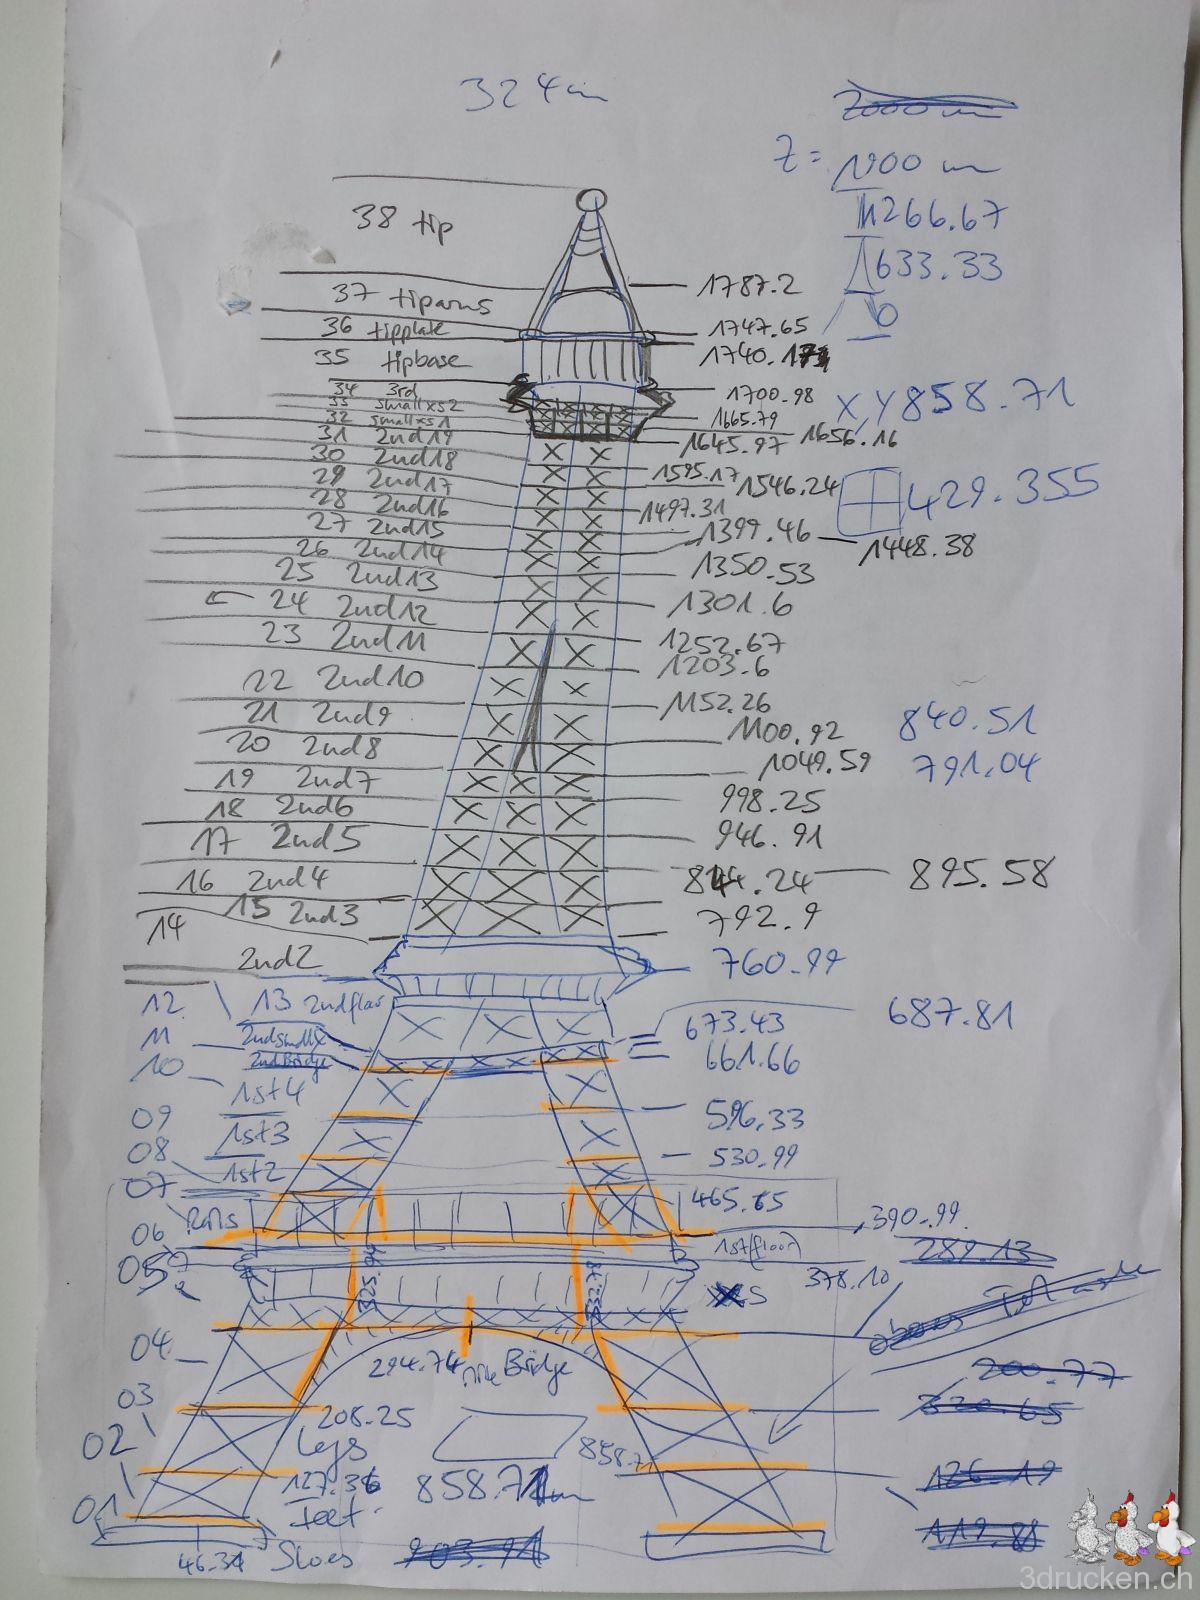 324m
Z = 1900 m
1266.67
633.33
0
38 tip
1787.2
37 tiparms
1747.65
36 tipplate
1740.17
35 tipbase
34 3rd
1700.98
X, Y 858.71
33 smallxs2
1665.79
32 smallxs1
1656.16
31 2nd19
1645.97
30 2nd18
1595.17
29 2nd17
1546.24
429.355
28 2nd16
1497.31
27 2nd15
1399.46
1448.38
26 2nd14
1350.53
25 2nd13
24 2nd12
1301.6
23 2nd11
1252.67
1203.6
22 2nd10
1152.26
21 2nd9
1100.92
840.51
20 2nd8
1049.59
791.04
19 2nd7
998.25
18 2nd6
946.91
17 2nd5
844.24
895.58
16 2nd4
15 2nd3
792.9
14
2nd2
760.99
12
13 2ndfloor
687.81
11
2ndsmallx
673.43
10
2ndBridge
661.66
1st4
09
596.33
1st3
08
530.99
1st2
07
465.65
Rails
06
390.99
289.13
1st(floor)
05
378.10
04
294.74
Bridge
200.77
03
320.65
208.25
02
Legs
858.71
127.36
858.71m
126.19
01
Feet
119.88
46.34
Shoes
903.91
3drucken.ch